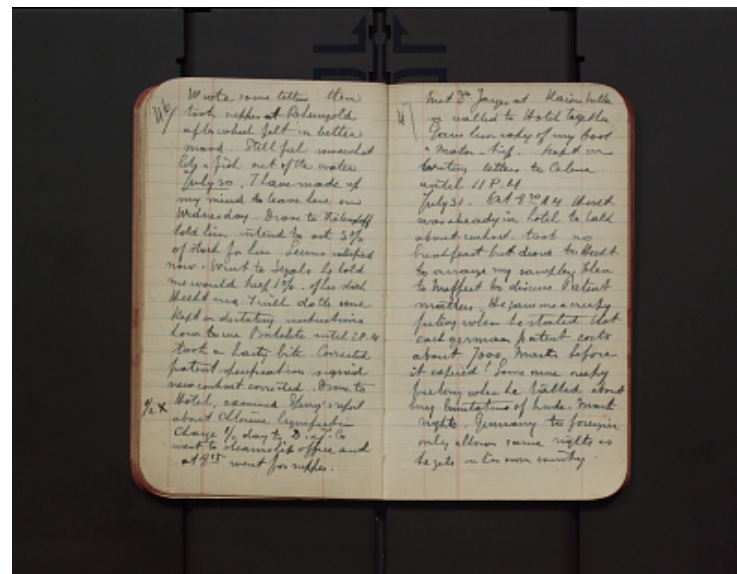 46/
Wrote some letters then
took supper at Rheingold
after which felt in better
mood. Still feel somewhat
like a fish out of the water
July 30. I have made up
my mind to leave here on
Wednesday. Drove to
told him intend to act 3%
of stock for him. Seems satisfied
now. Went to he told
me would keep 1% of his stock
Hecht and I will do the same
Kept on dictating instructions
how to use Bakelite until 2 P.M
took a hasty bite. Corrected
patent specifications signed
new contract corrected. Drove to
Hotel, examined report
1/2 X
about Chlorine liquefaction
Charge 1/2 day to
went to steamship office and
at 8 15 went for supper.
47
Met Dr. at
& walled to Hotel together
Gave him copy of my book
a Motor trip. Kept on
writing letters to Celine
until 11 P.M
July 31. At 8 30 AM
was already in hotel to talk
about contract took no
breakfast but drove to Hecht
to arrange my samples then
to to discuss Patent
matters. He gave me a creepy
feeling when he started that
each german patent costs
about 7000 Marks before
it expired! Some more creepy
feeling when he talked about
my limitations of trade Mark
rights. Germany to foreigner
only allows same rights as
he gets in his own country